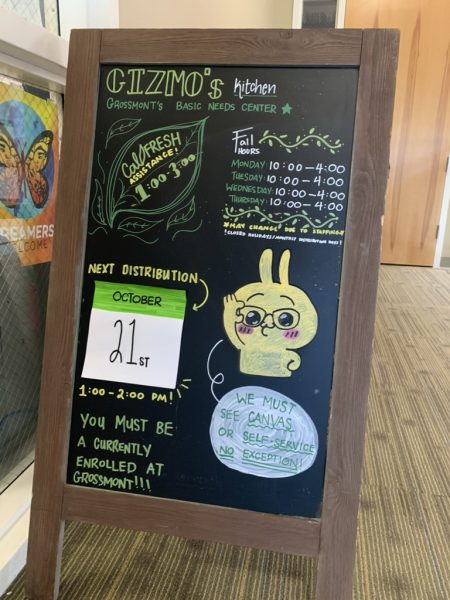 GIZMO's Kitchen
GROSSMONT'S BASIC NEEDS CENTER
CalFRESH
ASSISTANCE!
1:00-3:00
Fall
HOURS
MONDAY 10:00-4:00
TUESDAY: 10:00-4:00
WEDNESDAY: 10:00-4:00
THURSDAY: 10:00-4:00
*MAY CHANGE DUE TO STAFFING*
! CLOSED HOLIDAYS/MONTHLY DISTRIBUTION DAYS!
NEXT DISTRIBUTION
OCTOBER
21ST
1:00-2:00 PM!
YOU MUST BE
A CURRENTLY
ENROLLED AT
GROSSMONT!!!
WE MUST
SEE CANVAS
OR SELF-SERVICE
NO EXCEPTION!
DREAMERS
WELCOME